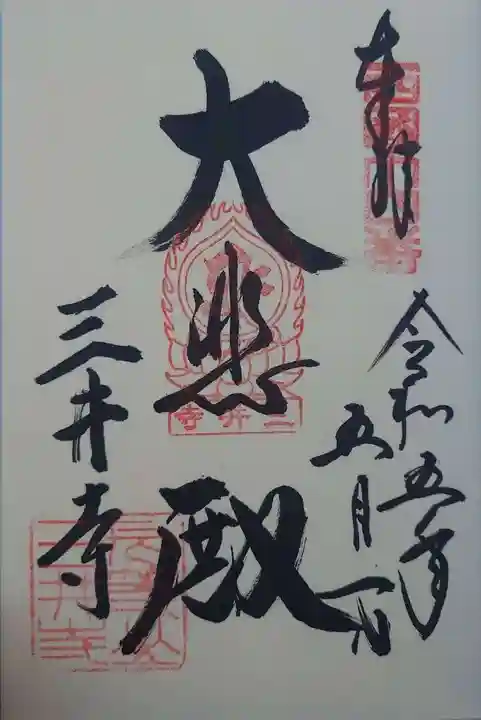 奉拝
令和五年
五月一日
大悲殿
三井寺
三井寺